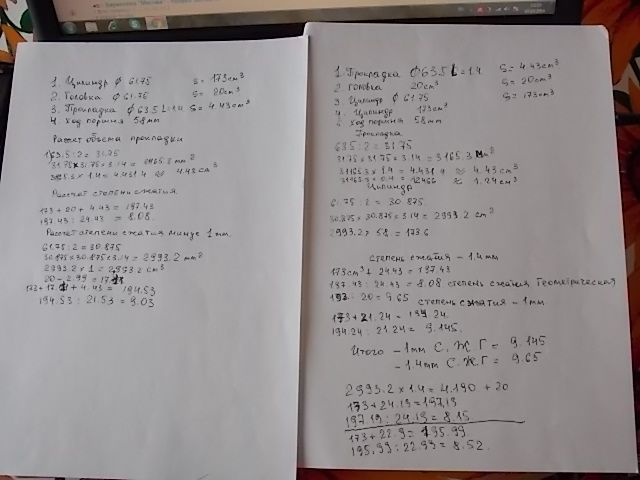 1. Цилиндр ϕ 61.75 S = 173cm³
2. Головка ϕ 61.75 S = 20cm³
3. Прокладка ϕ 63.5 L=1.4 S = 4.43cm³
4. Ход поршня 58мм
Расчет объема прокладки
63.5 : 2 = 31.75
31.75 x 31.75 x 3.14 = 3165.3 mm²
3165.3 x 1.4 = 4.431.4 ≈ 4.43 cm³
Рассчет степени сжатия.
173 + 20 + 4.43 = 197.43
197.43 : 24.43 = 8.08.
Рассчет степени сжатия минус 1мм.
61.75 : 2 = 30.875
30.875 x 30.875 x 3.14 = 2993.2 mm²
2993.2 x 1 = 2993.2 cm³
20 - 2.99 = 17.1
173 + 17.1 + 4.43 = 194.53
194.53 : 21.53 = 9.03
1. Прокладка ϕ 63.5 L=1.4 S = 4.43cm³
2. Головка 20cm³ S = 20cm³
3. Цилиндр ϕ 61.75 S = 173cm³
4. Цилиндр 173cm³
Ход поршня 58мм
Прокладка
63.5 : 2 = 31.75
31.75 x 31.75 x 3.14 = 3165.3 мм²
3165.3 x 1.4 = 4.431.4 ≈ 4.43 cm³
≈ 1.24cm³
Цилиндр
61.75 : 2 = 30.875.
30.875 x 30.875 x 3.14 = 2993.2 cm²
2993.2 x 58 = 173.6
степень сжатия - 1.4мм
173cm³ + 24.43 = 197.43
197.43 : 24.43 = 8.08 степень сжатия Геометрическая
193 : 20 = 9.65 степень сжатия - 1мм
173 + 21.24 = 194.24
194.24 : 21.24 = 9.145.
Итого - 1мм С. Ж. Г = 9.145
- 1.4мм С. Ж. Г = 9.65
2993.2 x 1.4 = 4.190 + 20
173 + 24.19 = 197.19
197.19 : 24.19 = 8.15
173 + 22.9 = 195.99
195.99 : 22.99 = 8.52.